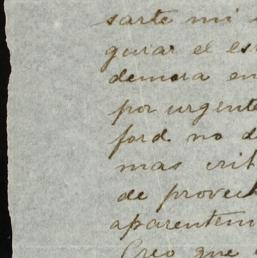 sarte mi
guiar el es
demora en
por urgente
ford no d
mas crit
de provech
aparentem
Creo que